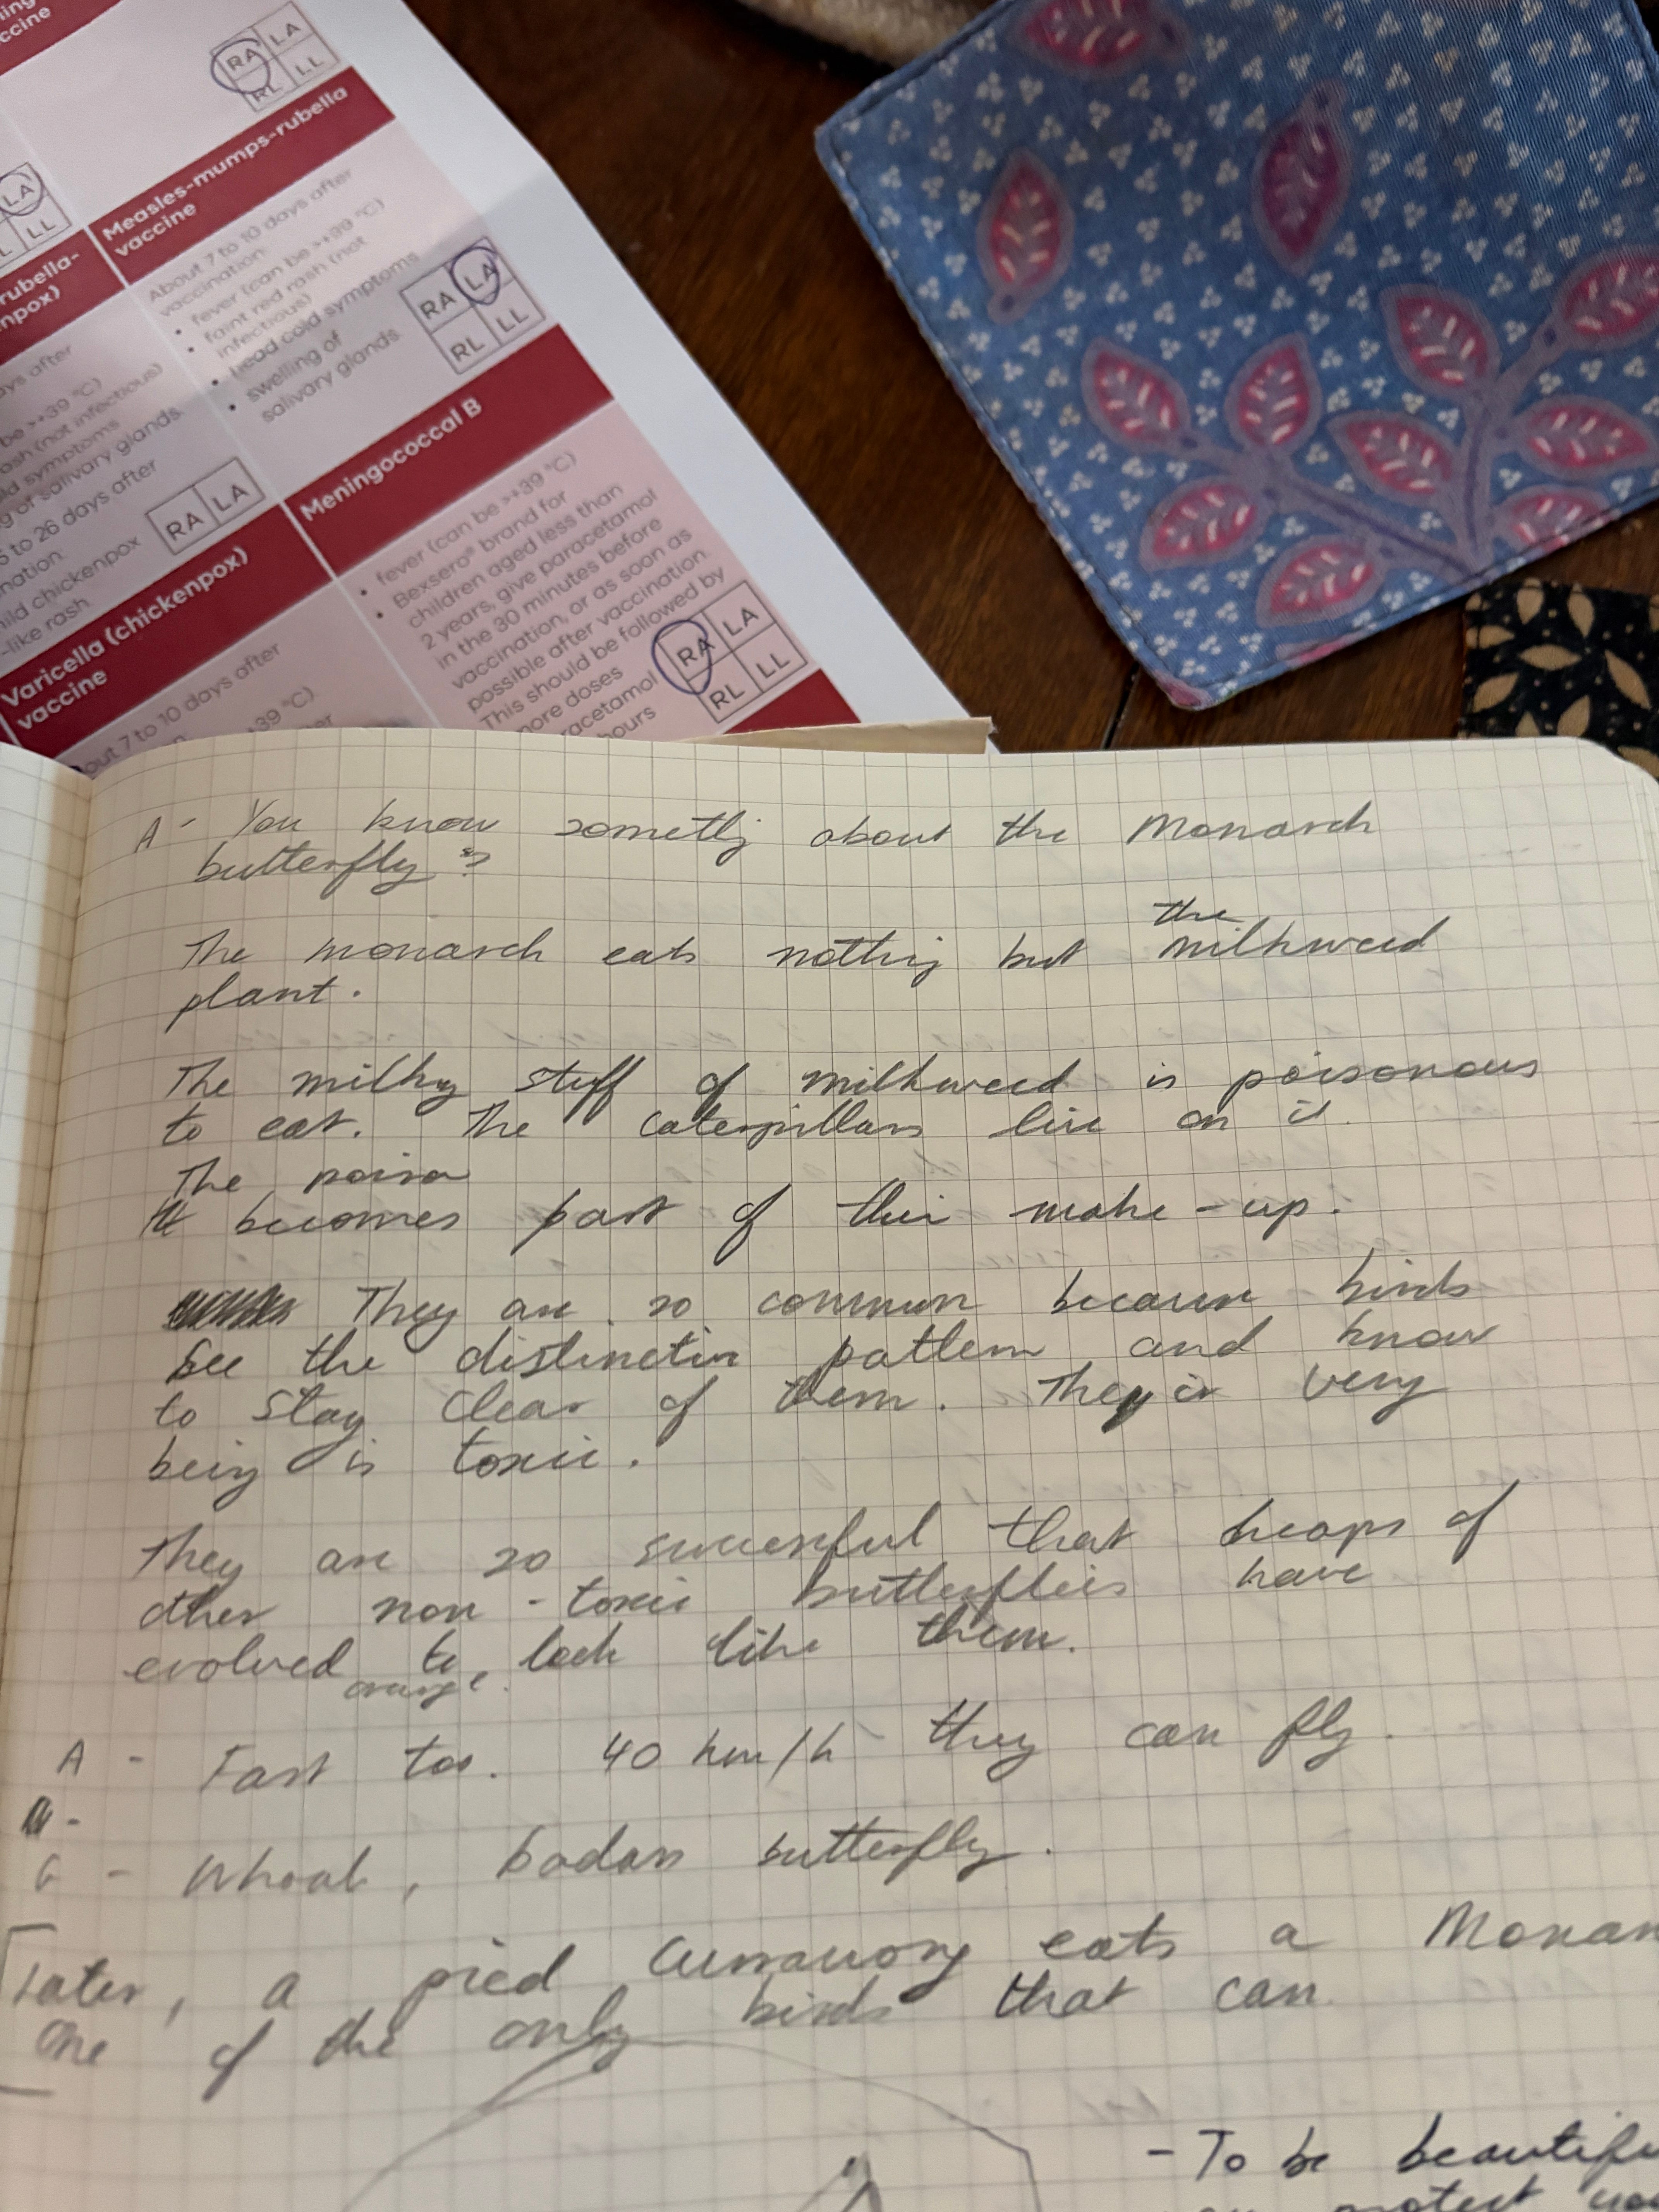 ccine
RA LA
RL LL
Measles-mumps-rubella
vaccine
About 7 to 10 days after
vaccination:
• fever (can be >+39 °C)
• faint red rash (not
infectious)
• head cold symptoms
• swelling of
salivary glands.
RA LA
RL LL
LA
LL
rubella-
npox)
ays after
be >+39 °C)
ash (not infectious)
ld symptoms
g of salivary glands.
5 to 26 days after
nation:
hild chickenpox
-like rash.
RA LA
Meningococcal B
• fever (can be >+39 °C)
• Bexsero® brand for
children aged less than
2 years, give paracetamol
in the 30 minutes before
vaccination, or as soon as
possible after vaccination.
This should be followed by
more doses
racetamol
hours
RA LA
RL LL
Varicella (chickenpox)
vaccine
out 7 to 10 days after
+39 °C)
A - You know somethj about the Monarch
butterfly?
The monarch eats nothing but the milkweed
plant.
The milky stuff of milkweed is poisonous
to eat. The caterpillars live on it.
The poison
It becomes part of their make-up.
They are so common because birds
see the distinctive pattern and know
to stay clear of them. They is very
being is toxic.
They are so successful that heaps of
other non-toxic butterflies have
evolved to look like them.
orange
A - Fast too. 40 km/h they can fly.
G - Whoah, badass butterfly.
Later, a pied currawong eats a Monar
One of the only birds that can
- To be beautifu
protect you